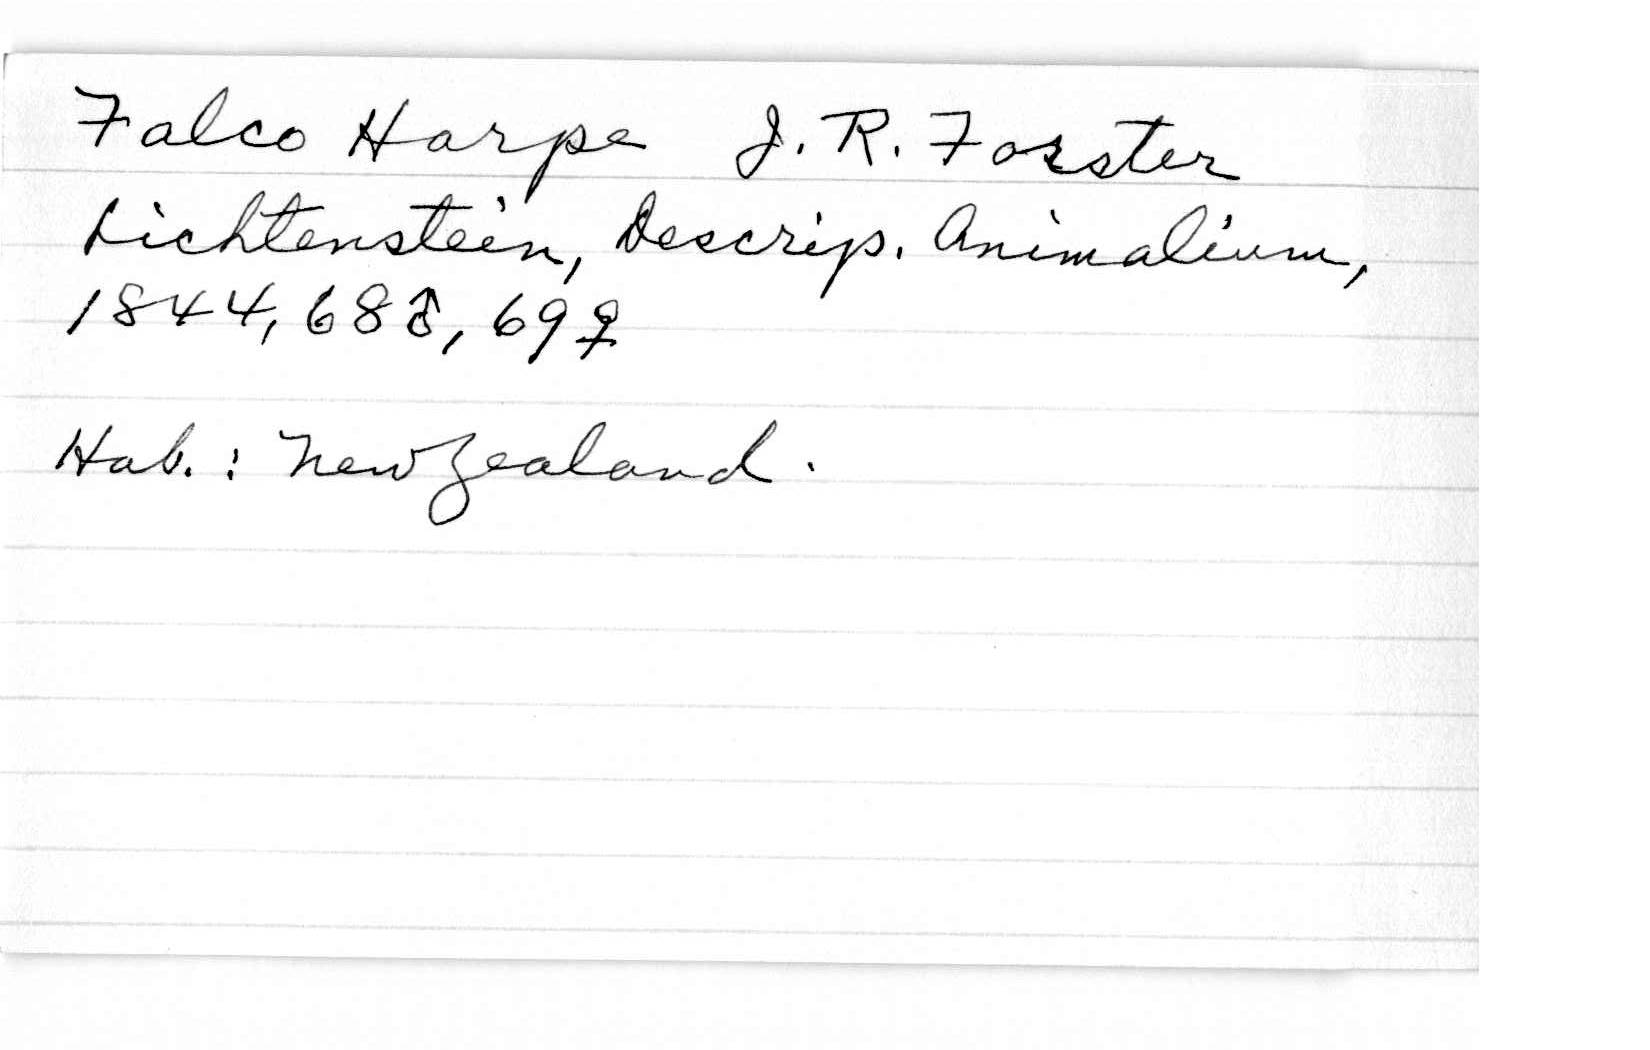 Falco Harpe J. R. Forster
Lichtenstein, Descrip. Animalium,
1844, 68♂, 69♀
Hab. : New Zealand.